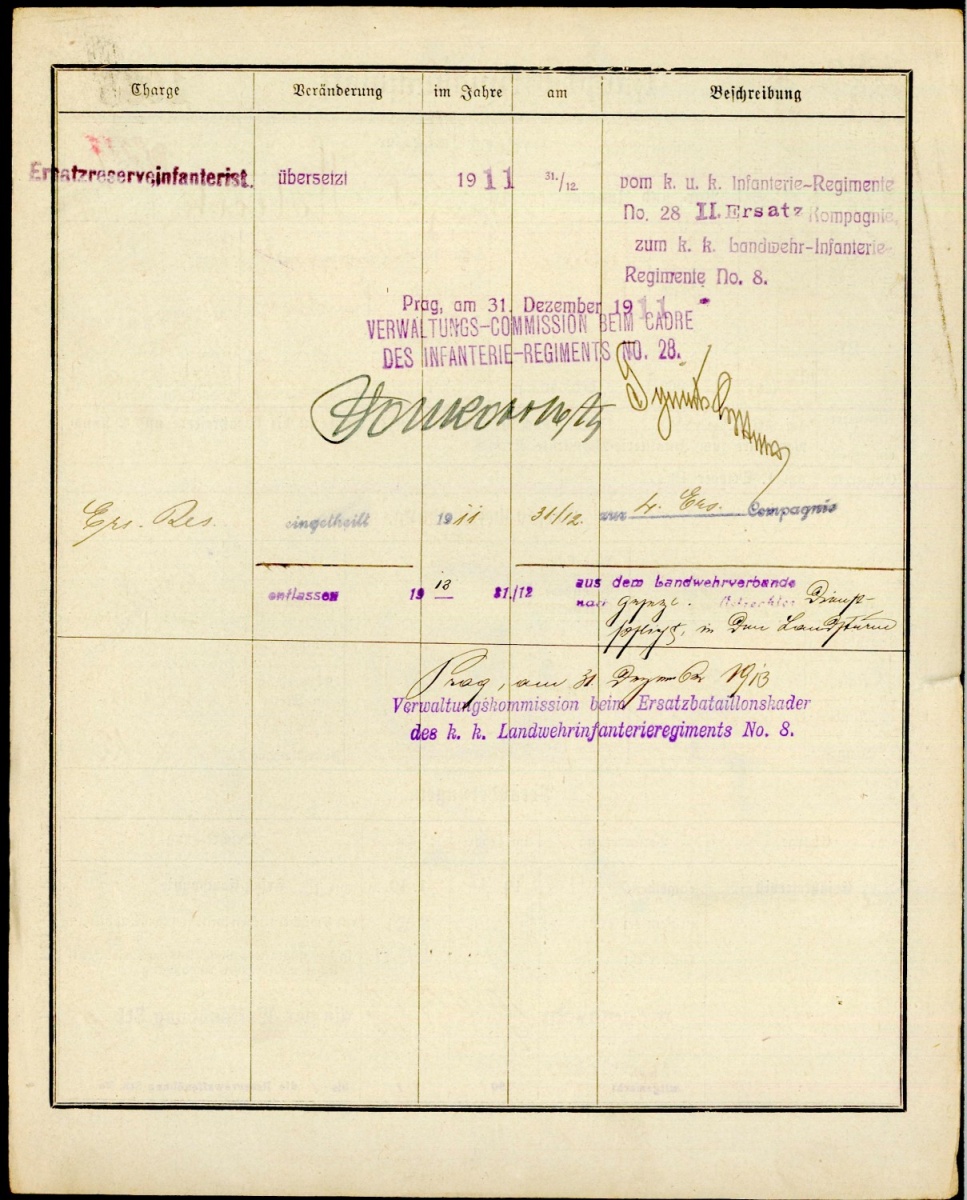 Charge Veränderung im Jahre am Beschreibung
Ersatzreserveinfanterist. übersetzt 1911 31./12. vom k. u. k. Infanterie-Regimente
No. 28 II. Ersatz Kompagnie,
zum k. k. Landwehr-Infanterie-
Regimente No. 8.
Prag, am 31. Dezember 1911
VERWALTUNGS-COMMISSION BEIM CADRE
DES INFANTERIE-REGIMENTS NO. 28.
Ers. Res. eingetheilt 1911 31/12. zur 4. Ers. Compagnie
entlassen 1913 31./12 aus dem Landwehrverbande
nach Dienst-
pflicht, in den Landsturm
Prag, am 31 Dezember 1913
Verwaltungskommission beim Ersatzbataillonskader
des k. k. Landwehrinfanterieregiments No. 8.